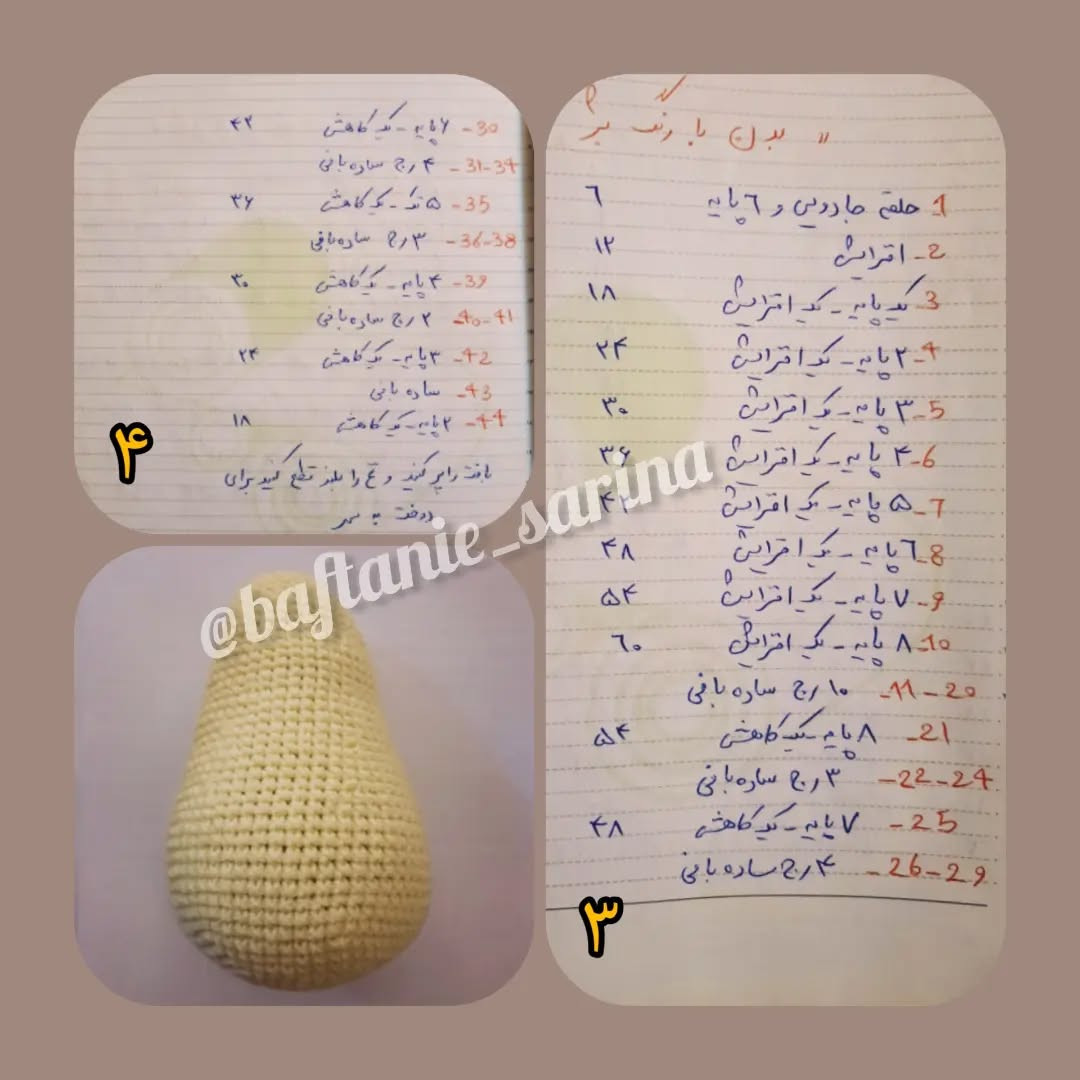 بدن با رنگ کرم
1- حلقه جادویی و ٦ پایه ٦
2- افزایش ۱۲
3- یک پایه - یک افزایش ۱۸
4- ۲ پایه - یک افزایش ۲۴
5- ۳ پایه - یک افزایش ۳۰
6- ۴ پایه - یک افزایش ۳۶
7- ۵ پایه - یک افزایش ۴۲
8- ٦ پایه - یک افزایش ۴۸
9- ۷ پایه - یک افزایش ۵۴
10- ۸ پایه - یک افزایش ٦۰
11-20- ۱۰ رج ساده بافی
21- ۸ پایه - یک کاهش ۵۴
22-24- ۳ رج ساده بافی
25- ۷ پایه - یک کاهش ۴۸
26-29- ۴ رج ساده بافی
۳
30- ۶ پایه - یک کاهش ۴۲
31-34- ۴ رج ساده بافی
35- ۵ تک - یک کاهش ۳۶
36-38- ۳ رج ساده بافی
39- ۴ پایه - یک کاهش ۳۰
40-41- ۲ رج ساده بافی
42- ۳ پایه - یک کاهش ۲۴
43- ساده بافی
44- ۲ پایه - یک کاهش ۱۸
بافت را پر کنید و نخ را بلند قطع کنید برای
دوخت به سر
۴
@baftanie_sarina